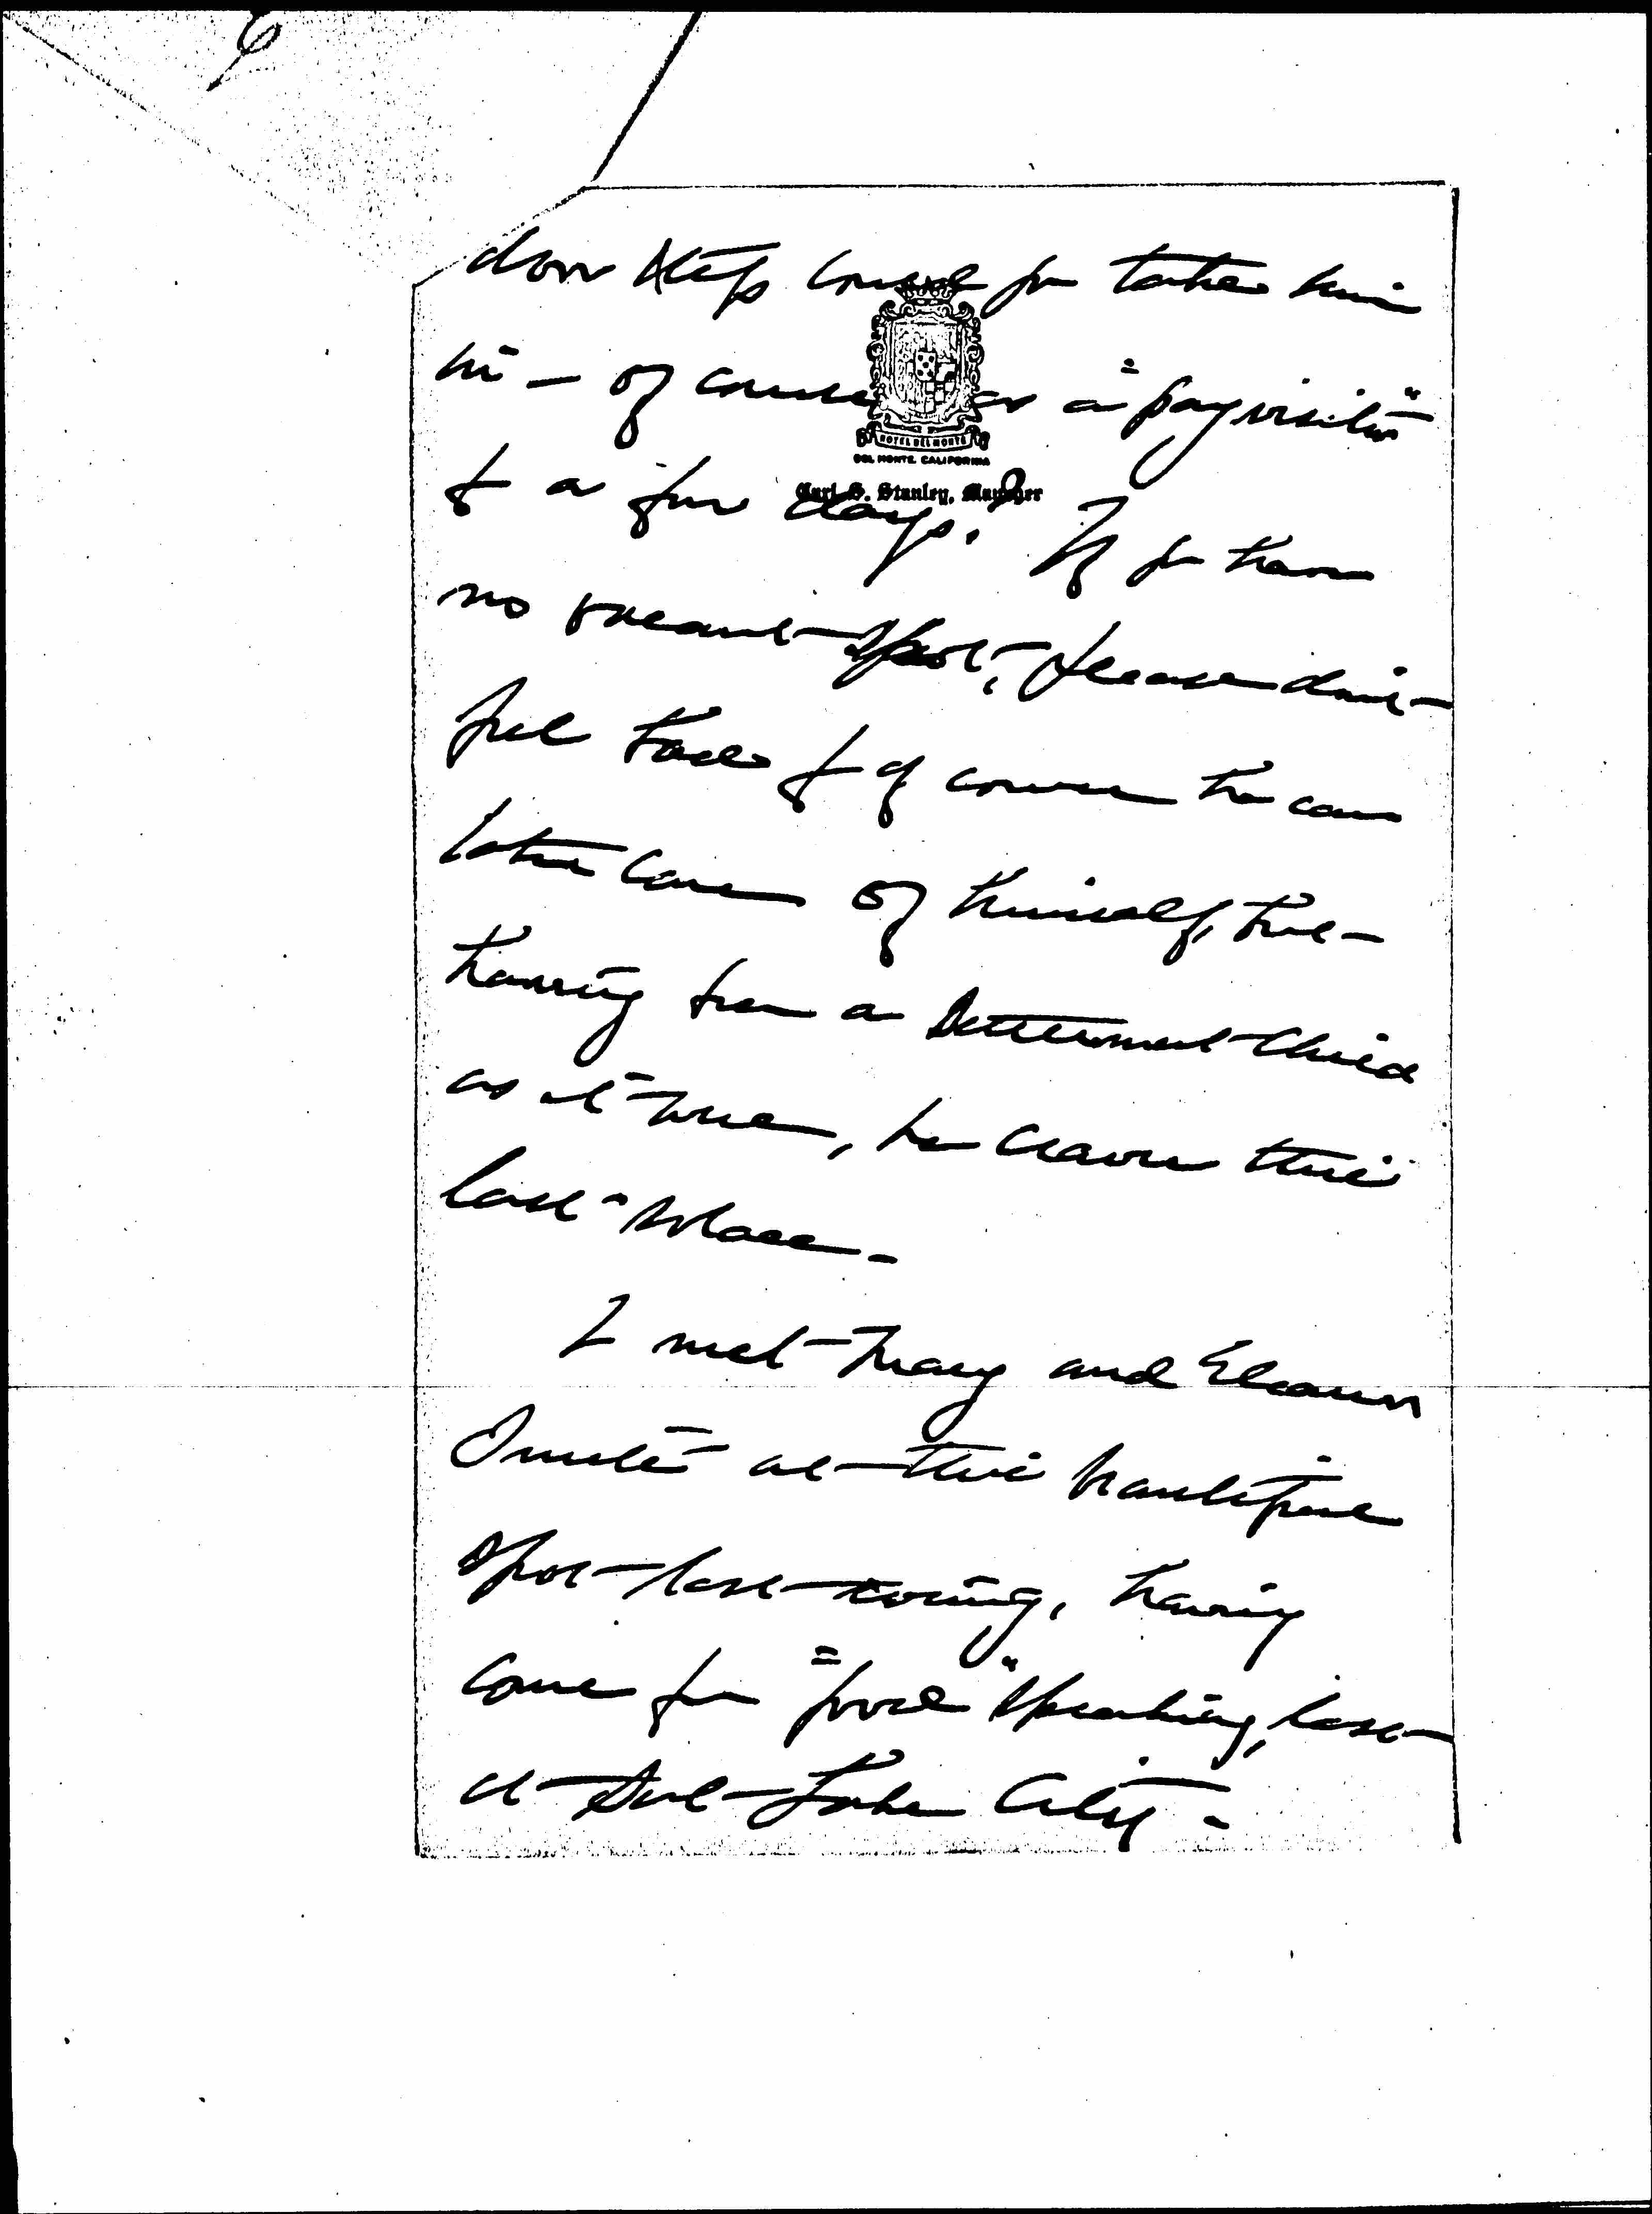 door steps could you take him
in – of course as a "pay visitor"
HOTEL DEL MONTE
DEL MONTE, CALIFORNIA
Carl S. Stanley, Manager
for a few days? If you have
no vacant spot, please don't
feel bad & of course he can
take care of himself, but
having been a Settlement child
as it were, he craves this
last solace –
I met Mary and Eleanor
at this beautiful
spot last evening, having
come for speaking, last
at Salt Lake City –